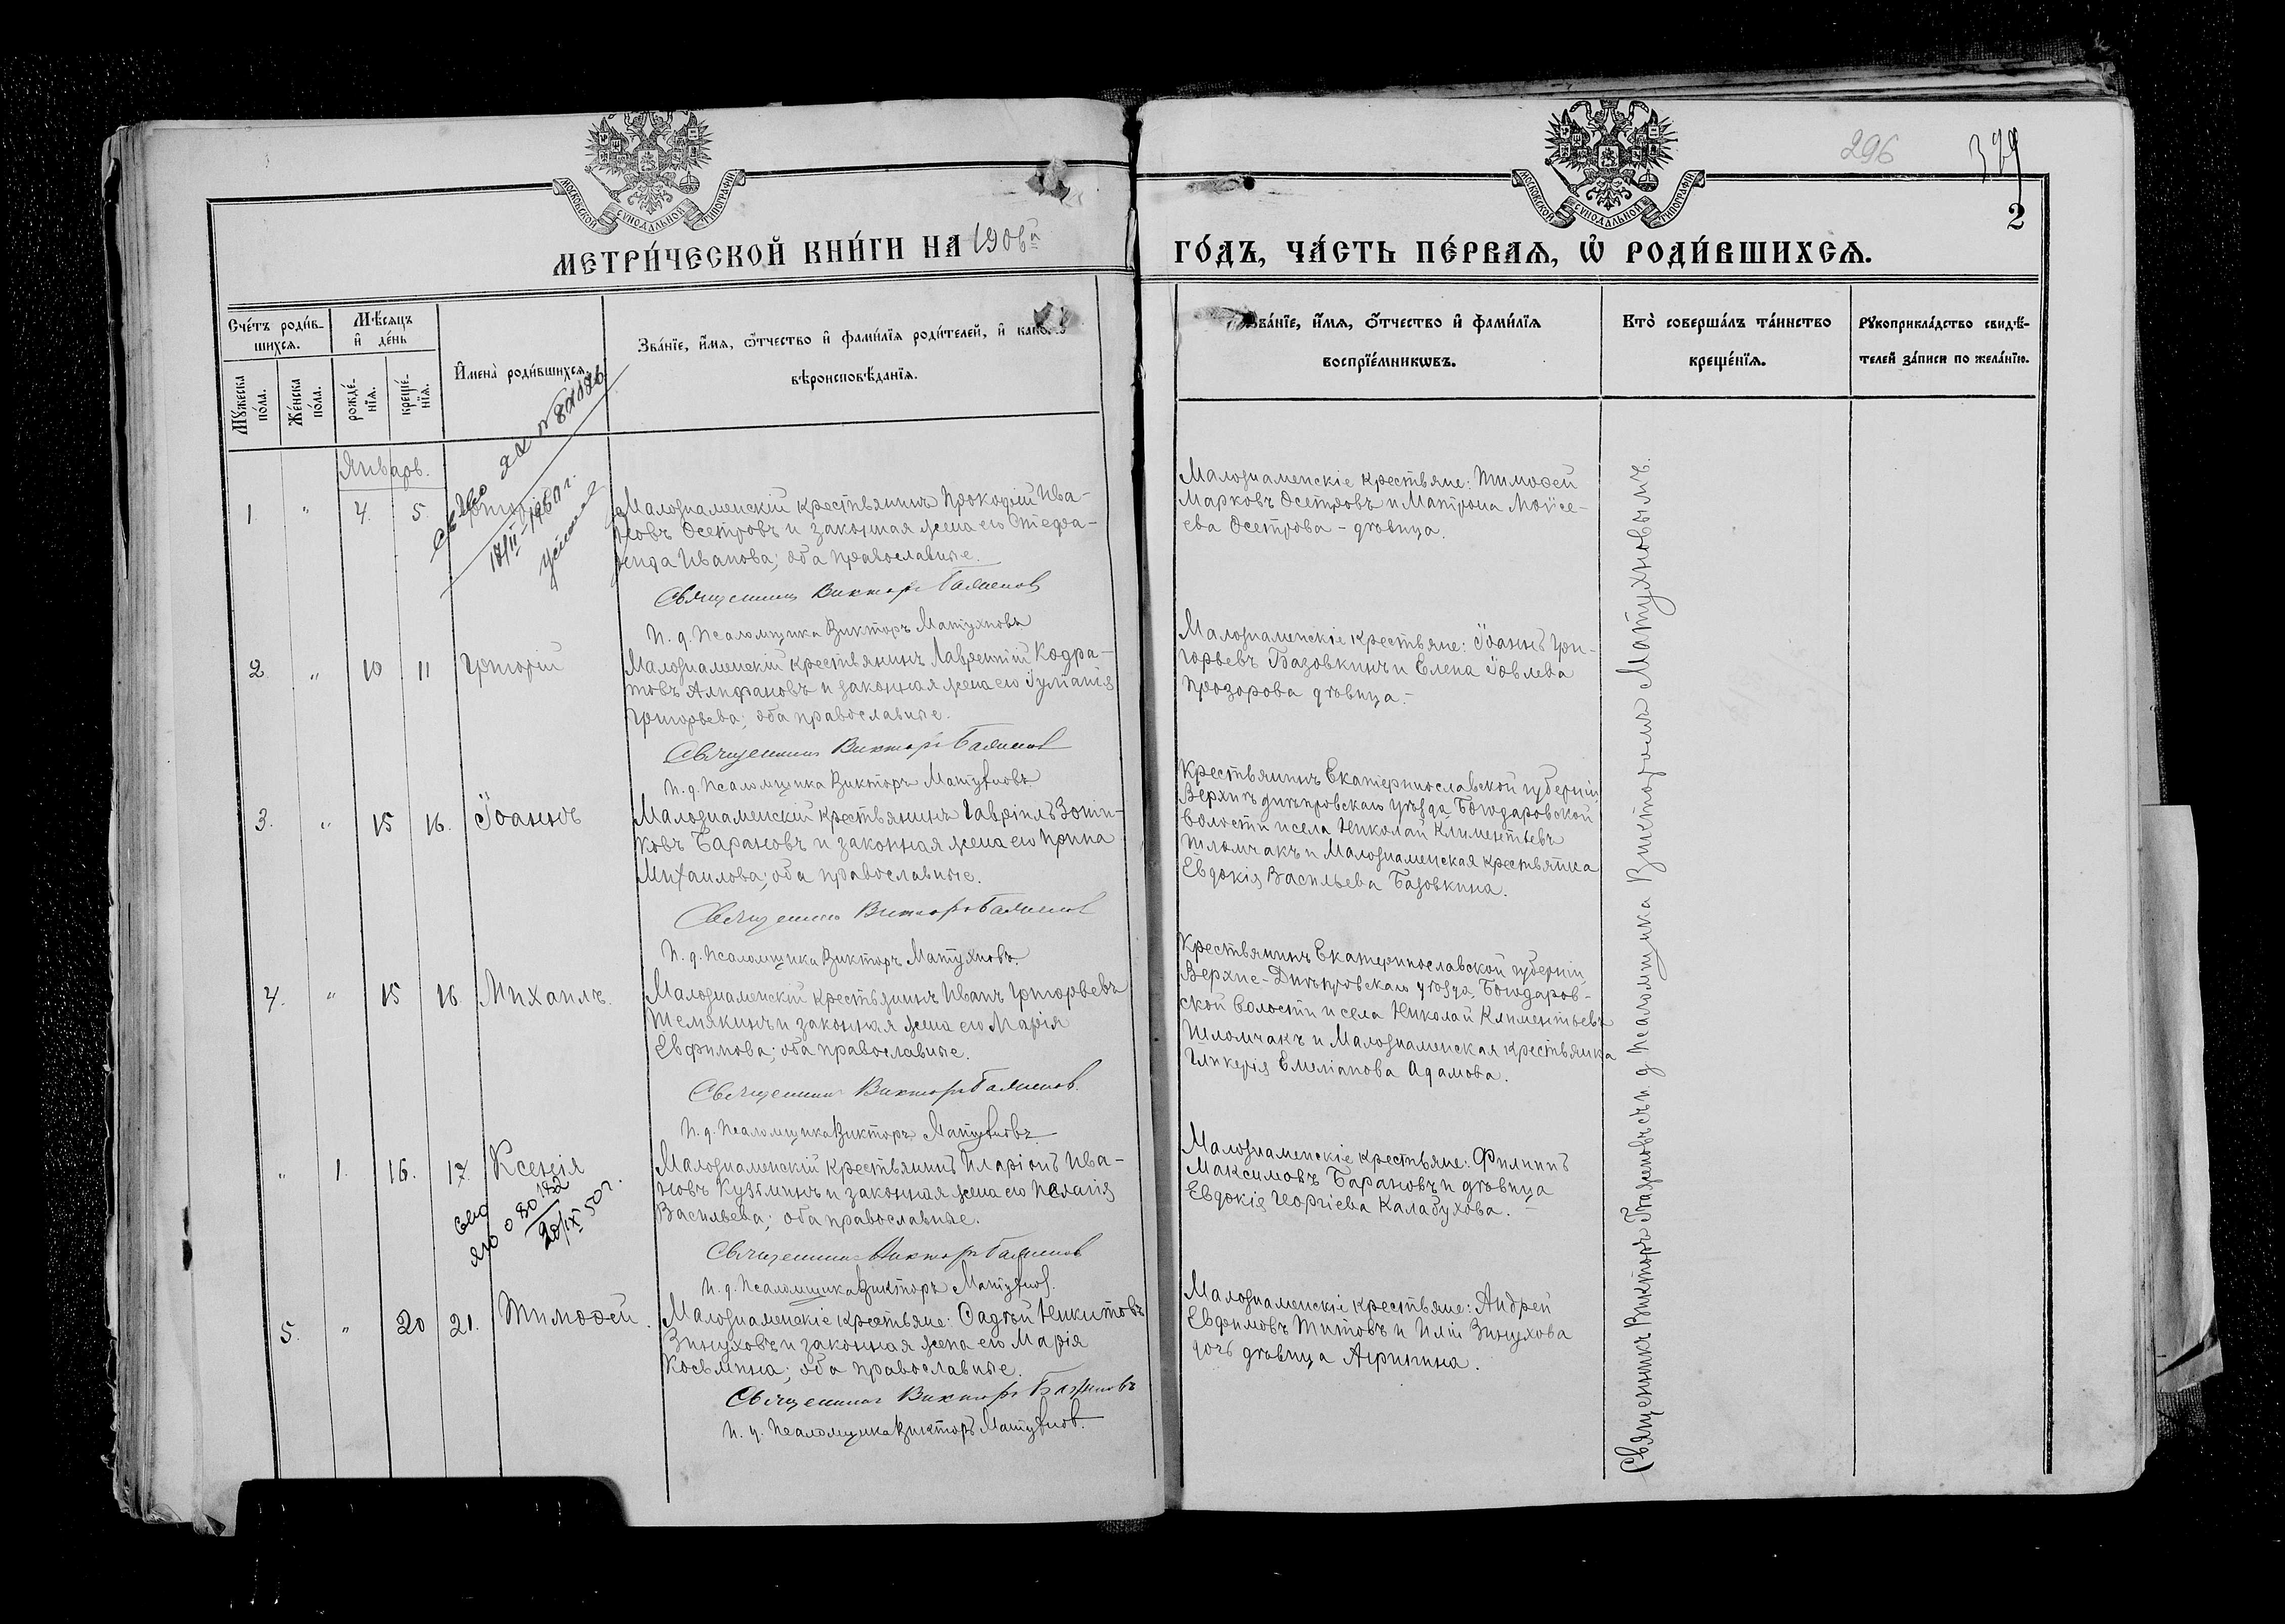 296
329
2
МОСКОВСКОЙ СѴНОДАЛЬНОЙ ТИПОГРАФІИ
МОСКОВСКОЙ СѴНОДАЛЬНОЙ ТИПОГРАФІИ
МЕТРИ́ЧЕСКОЙ КНИ́ГИ НА 1906й ГО́ДЪ, ЧА́СТЬ ПЕ́РВАѦ, Ѡ҆ РОДИ́ВШИХСѦ.
Сче́тъ роди́в-
шихсѧ.
Мꙋ́жеска
по́ла.
Же́нска
по́ла.
Мѣ́сѧцъ
и҆ де́нь
рожде́-
нїѧ.
креще́-
нїѧ.
И҆мена̀ роди́вшихсѧ.
Зва́нїе, и҆́мѧ, ѻ҆́тчество и҆ фами́лїѧ роди́телей, и҆
вѣроисповѣ́данїѧ.
Зва́нїе, и҆́мѧ, ѻ҆́тчество и҆ фами́лїѧ
воспрїе́мникѡвъ.
Кто̀ соверша́лъ та́инство
креще́нїѧ.
Рꙋкоприкла́дство свидѣ́-
телей за́писи по жела́нїю.
Январь.
1 " 4. 5.
17/II-1960 г.
Малознаменскій крестьянинъ Прокофій Ива-
новъ Осетровъ и законная жена его Стефа-
нида Иванова; оба православные.
Священникъ Викторъ Баженов
И. д. Псаломщика Викторъ Матухновъ
Малознаменскіе крестьяне: Тимоѳей
Марковъ Осетровъ и Матрона Моѵсе-
ева Осетрова - дѣвица.
2. " 10 11 Григорій
Малознаменскій крестьянинъ Лаврентій Кодра-
товъ Алифановъ и законная жена его Іуліанія
Григорьева; оба православные.
Священникъ Викторъ Баженов
И. д. Псаломщика Викторъ Матухновъ
Малознаменскіе крестьяне: Іоаннъ Гри-
горьевъ Базовкинъ и Елена Іовлева
Прозорова дѣвица.-
3. " 15 16. Іоаннъ
Малознаменскій крестьянинъ Гавріилъ Зоти-
ковъ Барановъ и законная жена его Ирина
Михаилова; оба православные.
Священникъ Викторъ Баженов
И. д. Псаломщика Викторъ Матухновъ.
Крестьянинъ Екатеринославской губерніи,
Верхнѣднѣпровскаго уѣзда, Богодаровской
волости и села Николай Климентьевъ
Шломчакъ и Малознаменская крестьянка
Евдокія Васильева Базовкина.
4. " 15 16. Михаилъ.
Малознаменскій крестьянинъ Иванъ Григорьевъ
Шемякинъ и законная жена его Марія
Евфимова; оба православные.
Священникъ Викторъ Баженов.
И. д. Псаломщика Викторъ Матухновъ
Крестьянинъ Екатеринославской губерніи
Верхне-Днѣпровскаго уѣзда, Богодаров-
ской волости и села Николай Климентьевъ
Шломчакъ и Малознаменская крестьянка
Гликерія Емеліанова Адамова.
" 1. 16. 17. Ксенія
20/IX 50 г.
Малознаменскій крестьянинъ Иларіонъ Ива-
новъ Кузьминъ и законная жена его Пелагія
Васильева; оба православные.
Священникъ Викторъ Баженов
И. д. Псаломщика Викторъ Матухнов.
Малознаменскіе крестьяне: Филиппъ
Максимовъ Барановъ и дѣвица
Евдокія Георгіева Калабухова.-
5. " 20 21. Тимоѳей.
Малознаменскіе крестьяне: Фадѣй Никитовъ
Винуховъ и законная жена его Марія
Косьмина; оба православные.
Священникъ Викторъ Баженовъ
И. д. Псаломщика Викторъ Матухнов.
Малознаменскіе крестьяне: Андрей
Евфимовъ Титовъ и Иліи Винухова
дочь дѣвица Агрипина.
Священникъ Викторъ Баженовъ съ и. д. Псаломщика Викторомъ Матухновымъ.